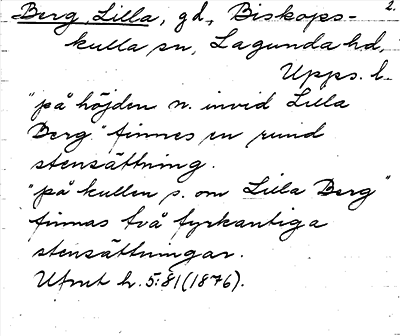 2.
Berg, Lilla, gd., Biskops-
kulla sn, Lagunda hd,
Upps. l.
"på höjden n. invid Lilla
Berg" finnes en rund
stensättning.
"på kullen s. om Lilla Berg"
finnas två fyrkantiga
stensättningar.
Ufmt h. 5:81 (1876).